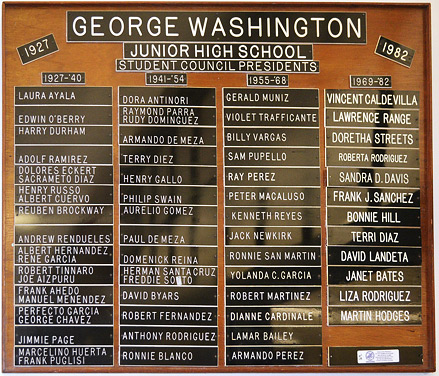 1927
GEORGE WASHINGTON
1982
JUNIOR HIGH SCHOOL
STUDENT COUNCIL PRESIDENTS
1927-'40
LAURA AYALA
EDWIN O'BERRY
HARRY DURHAM
ADOLF RAMIREZ
DOLORES ECKERT
SACRAMETO DIAZ
HENRY RUSSO
ALBERT CUERVO
REUBEN BROCKWAY
ANDREW RENDUELES
ALBERT HERNANDEZ
RENE GARCIA
ROBERT TINNARO
JOE AIZPURU
FRANK AHEDO
MANUEL MENENDEZ
PERFECTO GARCIA
GEORGE CHAVEZ
JIMMIE PAGE
MARCELINO HUERTA
FRANK PUGLISI
1941-'54
DORA ANTINORI
RAYMOND PARRA
RUDY DOMINGUEZ
ARMANDO DE MEZA
TERRY DIEZ
HENRY GALLO
PHILIP SWAIN
AURELIO GOMEZ
PAUL DE MEZA
DOMENICK REINA
HERMAN SANTA CRUZ
FREDDIE SOTO
DAVID BYARS
ROBERT FERNANDEZ
ANTHONY RODRIGUEZ
RONNIE BLANCO
1955-'68
GERALD MUNIZ
VIOLET TRAFFICANTE
BILLY VARGAS
SAM PUPELLO
RAY PEREZ
PETER MACALUSO
KENNETH REYES
JACK NEWKIRK
RONNIE SAN MARTIN
YOLANDA C. GARCIA
ROBERT MARTINEZ
DIANNE CARDINALE
LAMAR BAILEY
ARMANDO PEREZ
1969-'82
VINCENT CALDEVILLA
LAWRENCE RANGE
DORETHA STREETS
ROBERTA RODRIGUEZ
SANDRA D. DAVIS
FRANK J. SANCHEZ
BONNIE HILL
TERRI DIAZ
DAVID LANDETA
JANET BATES
LIZA RODRIGUEZ
MARTIN HODGES